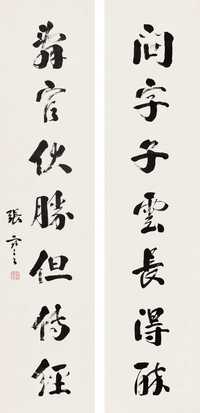 問字子雲長得醉
官伏勝但傳經
張